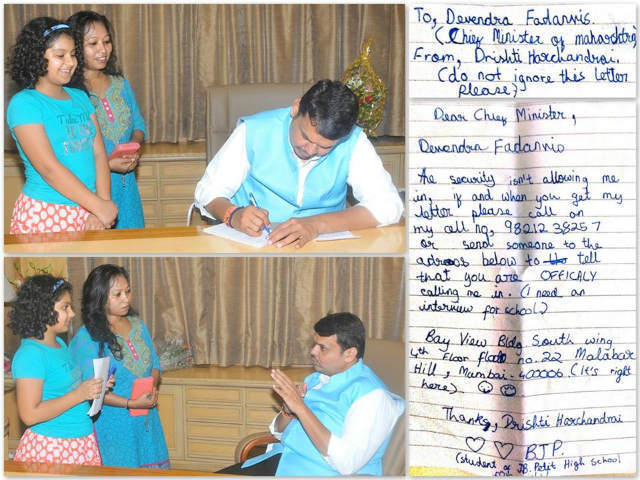 To, Devendra Fadanvis.
(Chief Minister of maharshtra)
From, Drishti Harchandrai.
(do not ignore this letter
please)
Dear Chief Minister,
Devendra Fadanvis
The security isn't allowing me
in, if and when you get my
letter please call on
my cell no, 9821238257
or send someone to the
address below to tell
that you are OFFICALY
calling me in. (I need an
interview for school.)
Bay View Bldg South wing
4th Floor flat no. 22 Malabar
Hill, Mumbai - 400006 (it's right
here).
Thanks, Drishti Harchandrai
BJP.
(student of JB. Petit High School